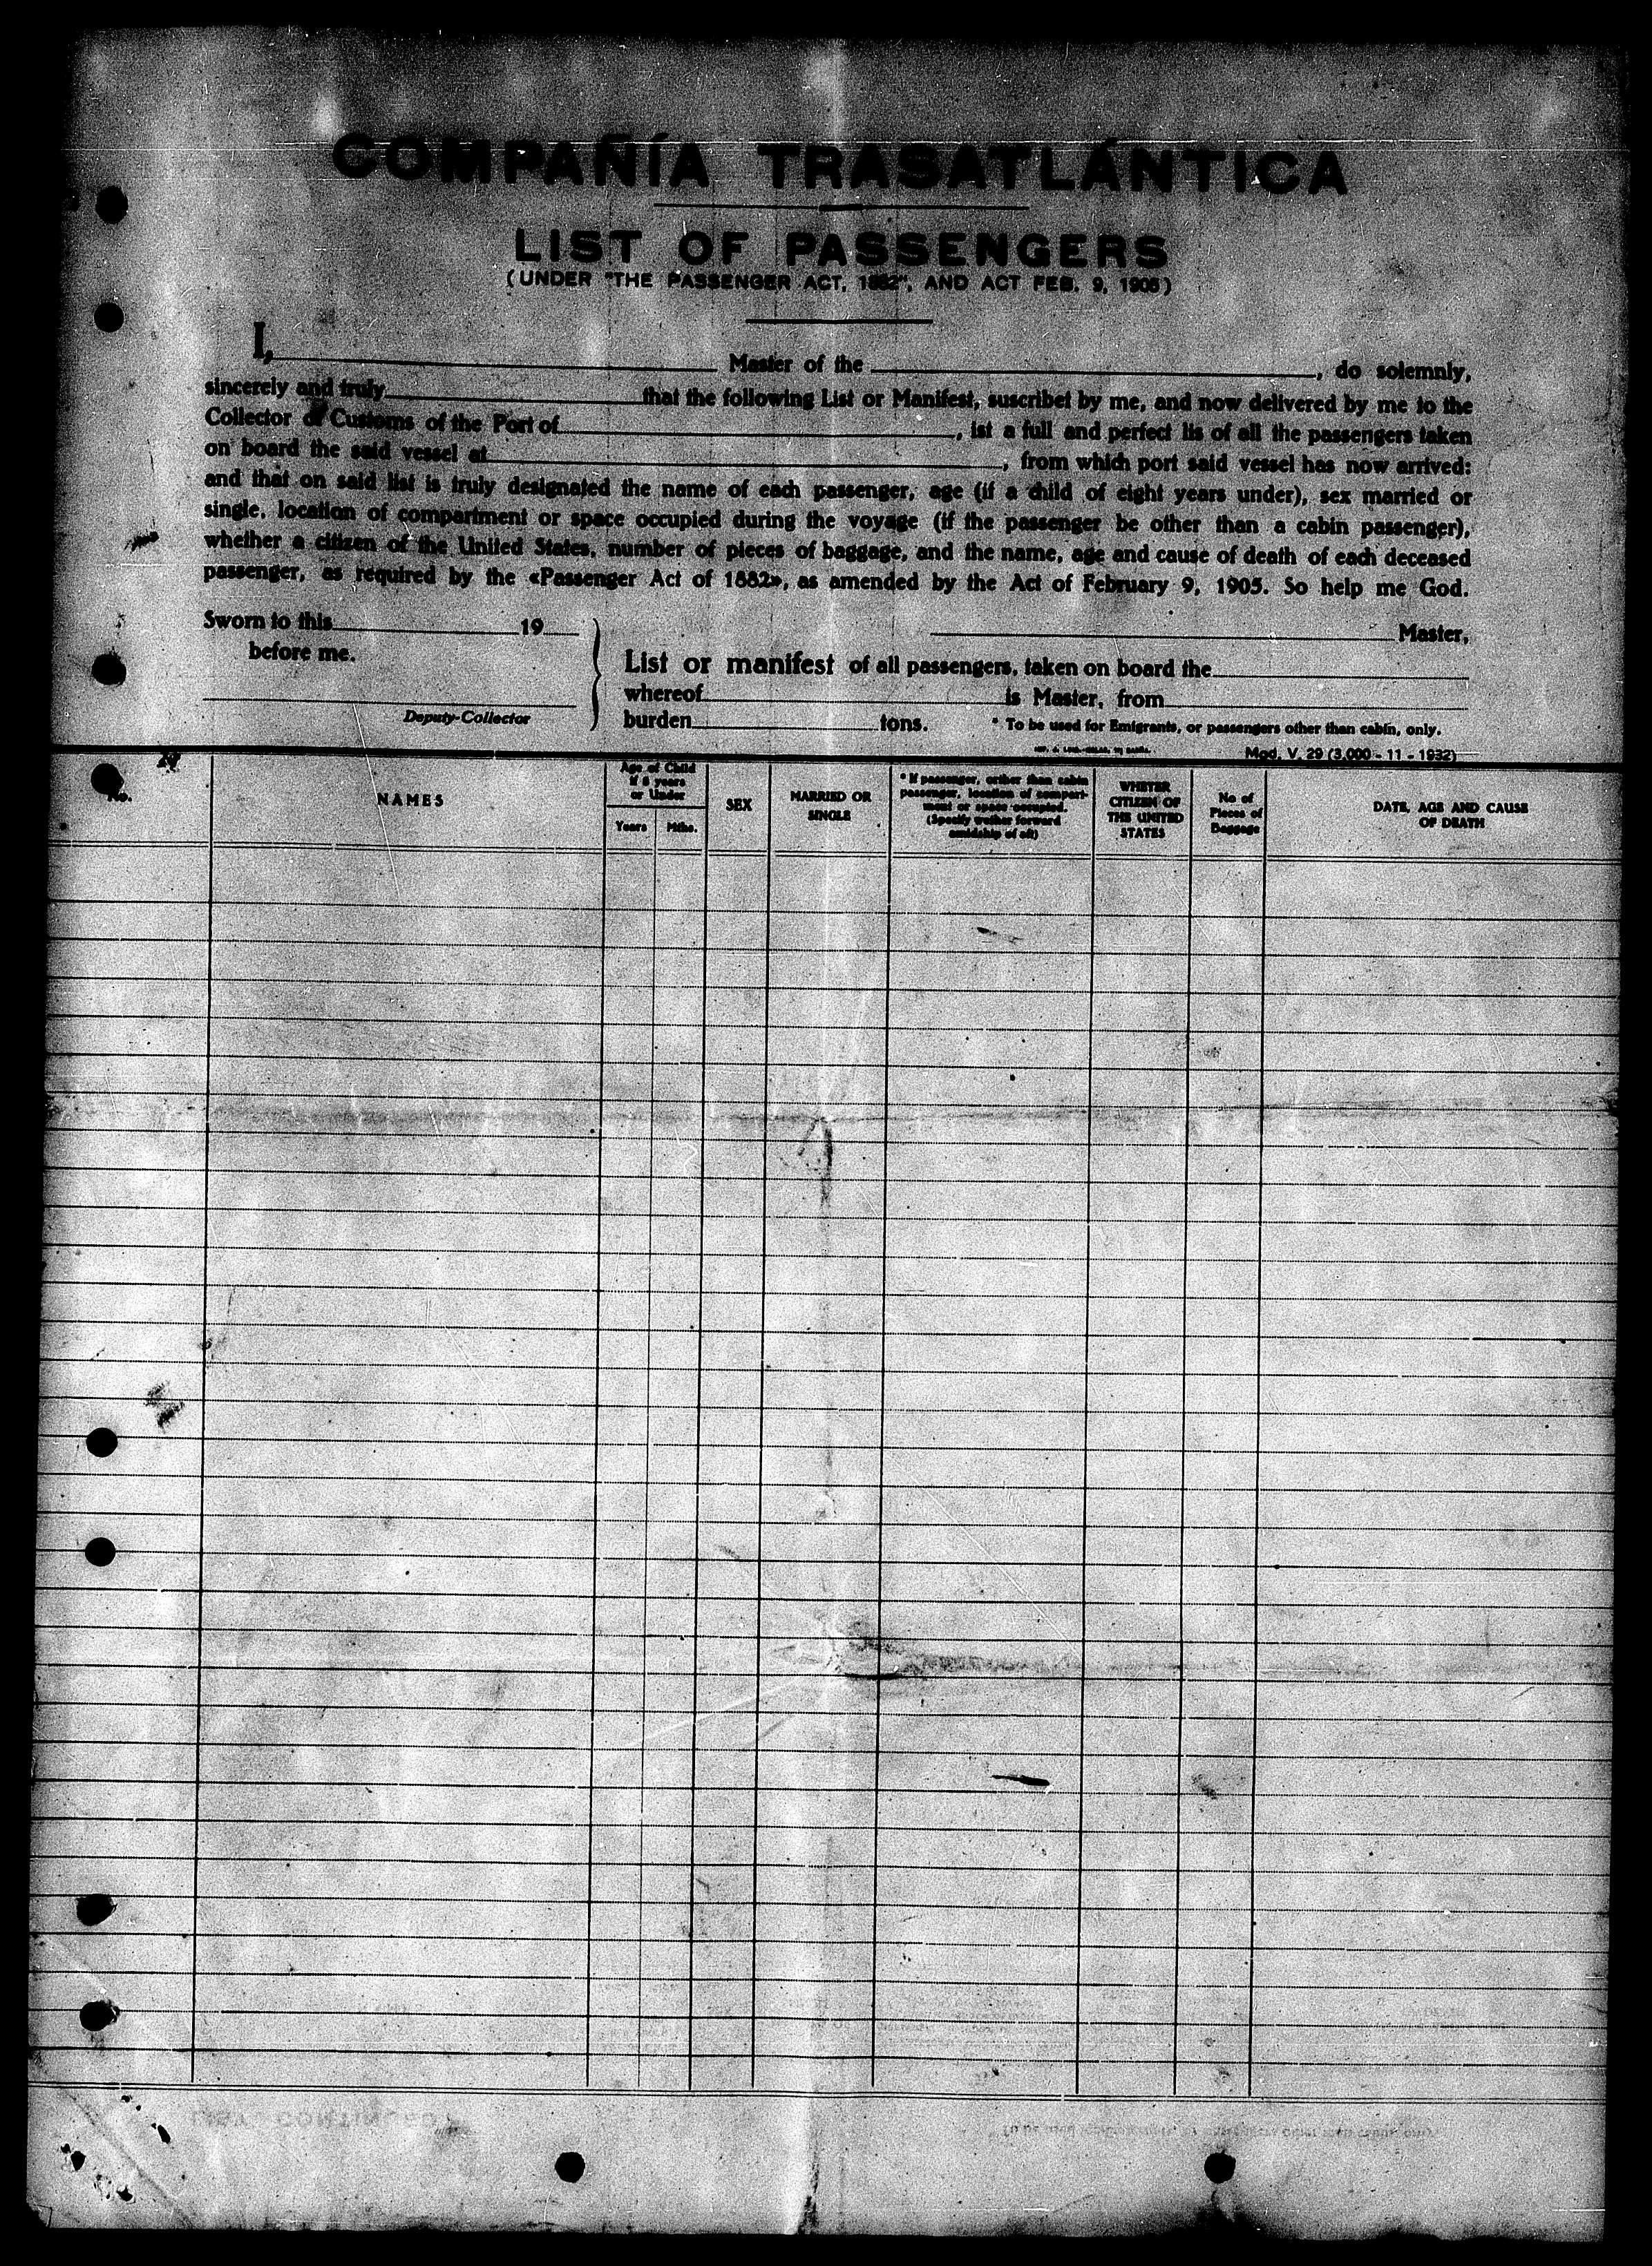 COMPAÑÍA TRASATLÁNTICA
LIST OF PASSENGERS
(UNDER "THE PASSENGER ACT, 1882", AND ACT FEB. 9, 1905)
I, Master of the , do solemnly,
sincerely and truly that the following List or Manifest, suscribet by me, and now delivered by me to the
Collector of Customs of the Port of , ist a full and perfect lis of all the passengers taken
on board the said vessel at , from which port said vessel has now arrived:
and that on said list is truly designated the name of each passenger, age (if a child of eight years under), sex married or
single, location of compartment or space occupied during the voyage (if the passenger be other than a cabin passenger),
whether a citizen of the United States, number of pieces of baggage, and the name, age and cause of death of each deceased
passenger, as required by the «Passenger Act of 1882», as amended by the Act of February 9, 1905. So help me God.
Sworn to this 19
before me.
Deputy-Collector
Master,
List or manifest of all passengers, taken on board the
whereof is Master, from
burden tons. * To be used for Emigrants, or passengers other than cabin, only.
Mod. V. 29 (3.000 - 11 - 1932)
No.
NAMES
Age of Child
if 8 years
or Under
Years Mths.
SEX
MARRIED OR
SINGLE
* If passenger, orther than cabin
passenger, location of compart-
ment or space occupied.
(Specify wether forward
amidship of aft)
WHETER
CITIZEN OF
THE UNITED
STATES
No of
Pieces of
Baggage
DATE, AGE AND CAUSE
OF DEATH
LIST CONTINUED